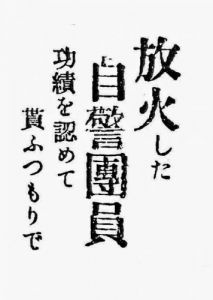 放火した
自警團員
功績を認めて
貰ふつもりで